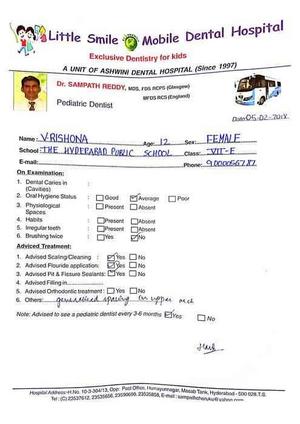 Little Smile Mobile Dental Hospital
Exclusive Dentistry for kids
A UNIT OF ASHWINI DENTAL HOSPITAL (Since 1997)
Dr. SAMPATH REDDY, MDS, FDS RCPS (Glasgow)
MFDS RCS (England)
Pediatric Dentist
Date: 05-02-2018
Name: V. RISHONA Age: 12 Sex: FEMALE
School: THE HYDERABAD PUBLIC SCHOOL Class: VII-E
E-mail: Phone:
On Examination:
1. Dental Caries in :
(Cavities)
2. Oral Hygiene Status : Good Average Poor
3. Physiological : Present Absent
Spaces
4. Habits : Present Absent
5. Irregular teeth : Present Absent
6. Brushing twice : Yes No
Adviced Treatment:
1. Advised Scaling/Cleaning : Yes No
2. Advised Flouride application: Yes No
3. Advised Pit & Fissure Sealants: Yes No
4. Advised Filling in
5. Advised Orthodontic treatment: Yes No
6. Others: generalised spacing in upper arch
Note: Advised to see a pediatric dentist every 3-6 months Yes No
Hospital Address: H.No. 10-3-304/13, Opp: Post Office, Humayunnagar, Masab Tank, Hyderabad - 500 028 T.S.
Tel: (C) 23537612, 23535656, 23590699, 23535858, E-mail: